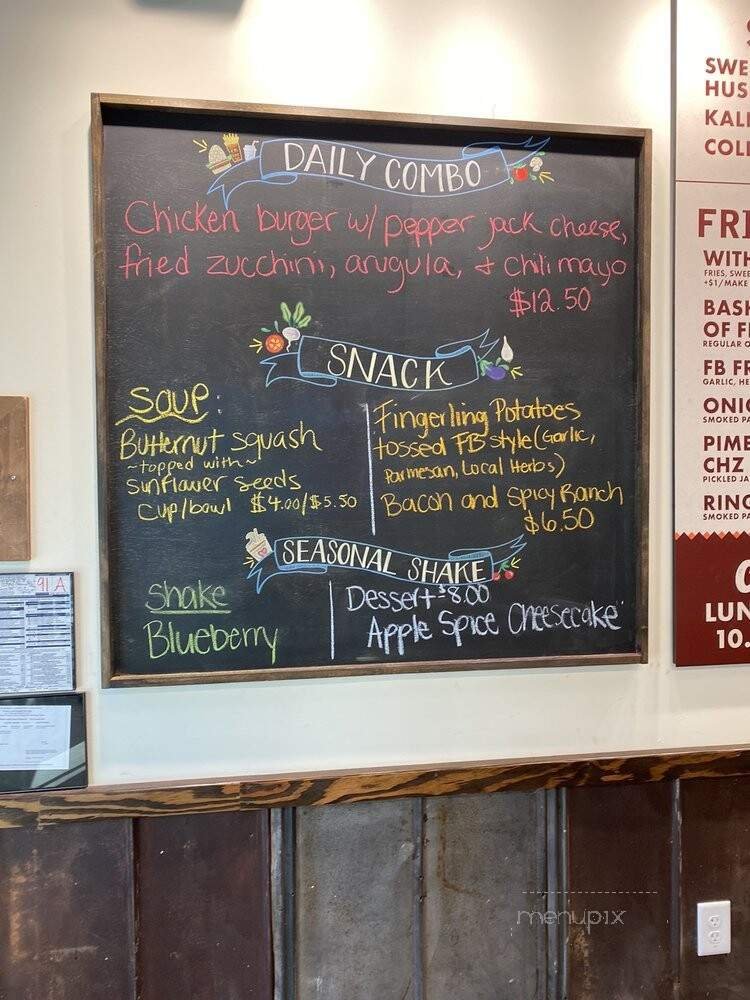 DAILY COMBO
Chicken burger w/ pepper jack cheese,
fried zucchini, arugula, + chili mayo
$12.50
SNACK
SOUP:
Butternut squash
~topped with~
sunflower seeds
cup/bowl $4.00/$5.50
Fingerling Potatoes
tossed FB style (Garlic,
Parmesan, Local Herbs)
Bacon and Spicy Ranch
$6.50
SEASONAL SHAKE
Shake
Blueberry
Dessert - $8.00
Apple Spice Cheesecake
SWE
HUS
KAL
COLL
FRI
WITH
FRIES, SWEE
+$1/MAKE
BASK
OF F
REGULAR O
FB FR
GARLIC, HE
ONIO
SMOKED PA
PIME
CHZ
PICKLED JA
RING
SMOKED PA
LUN
10.
91 A
menupix